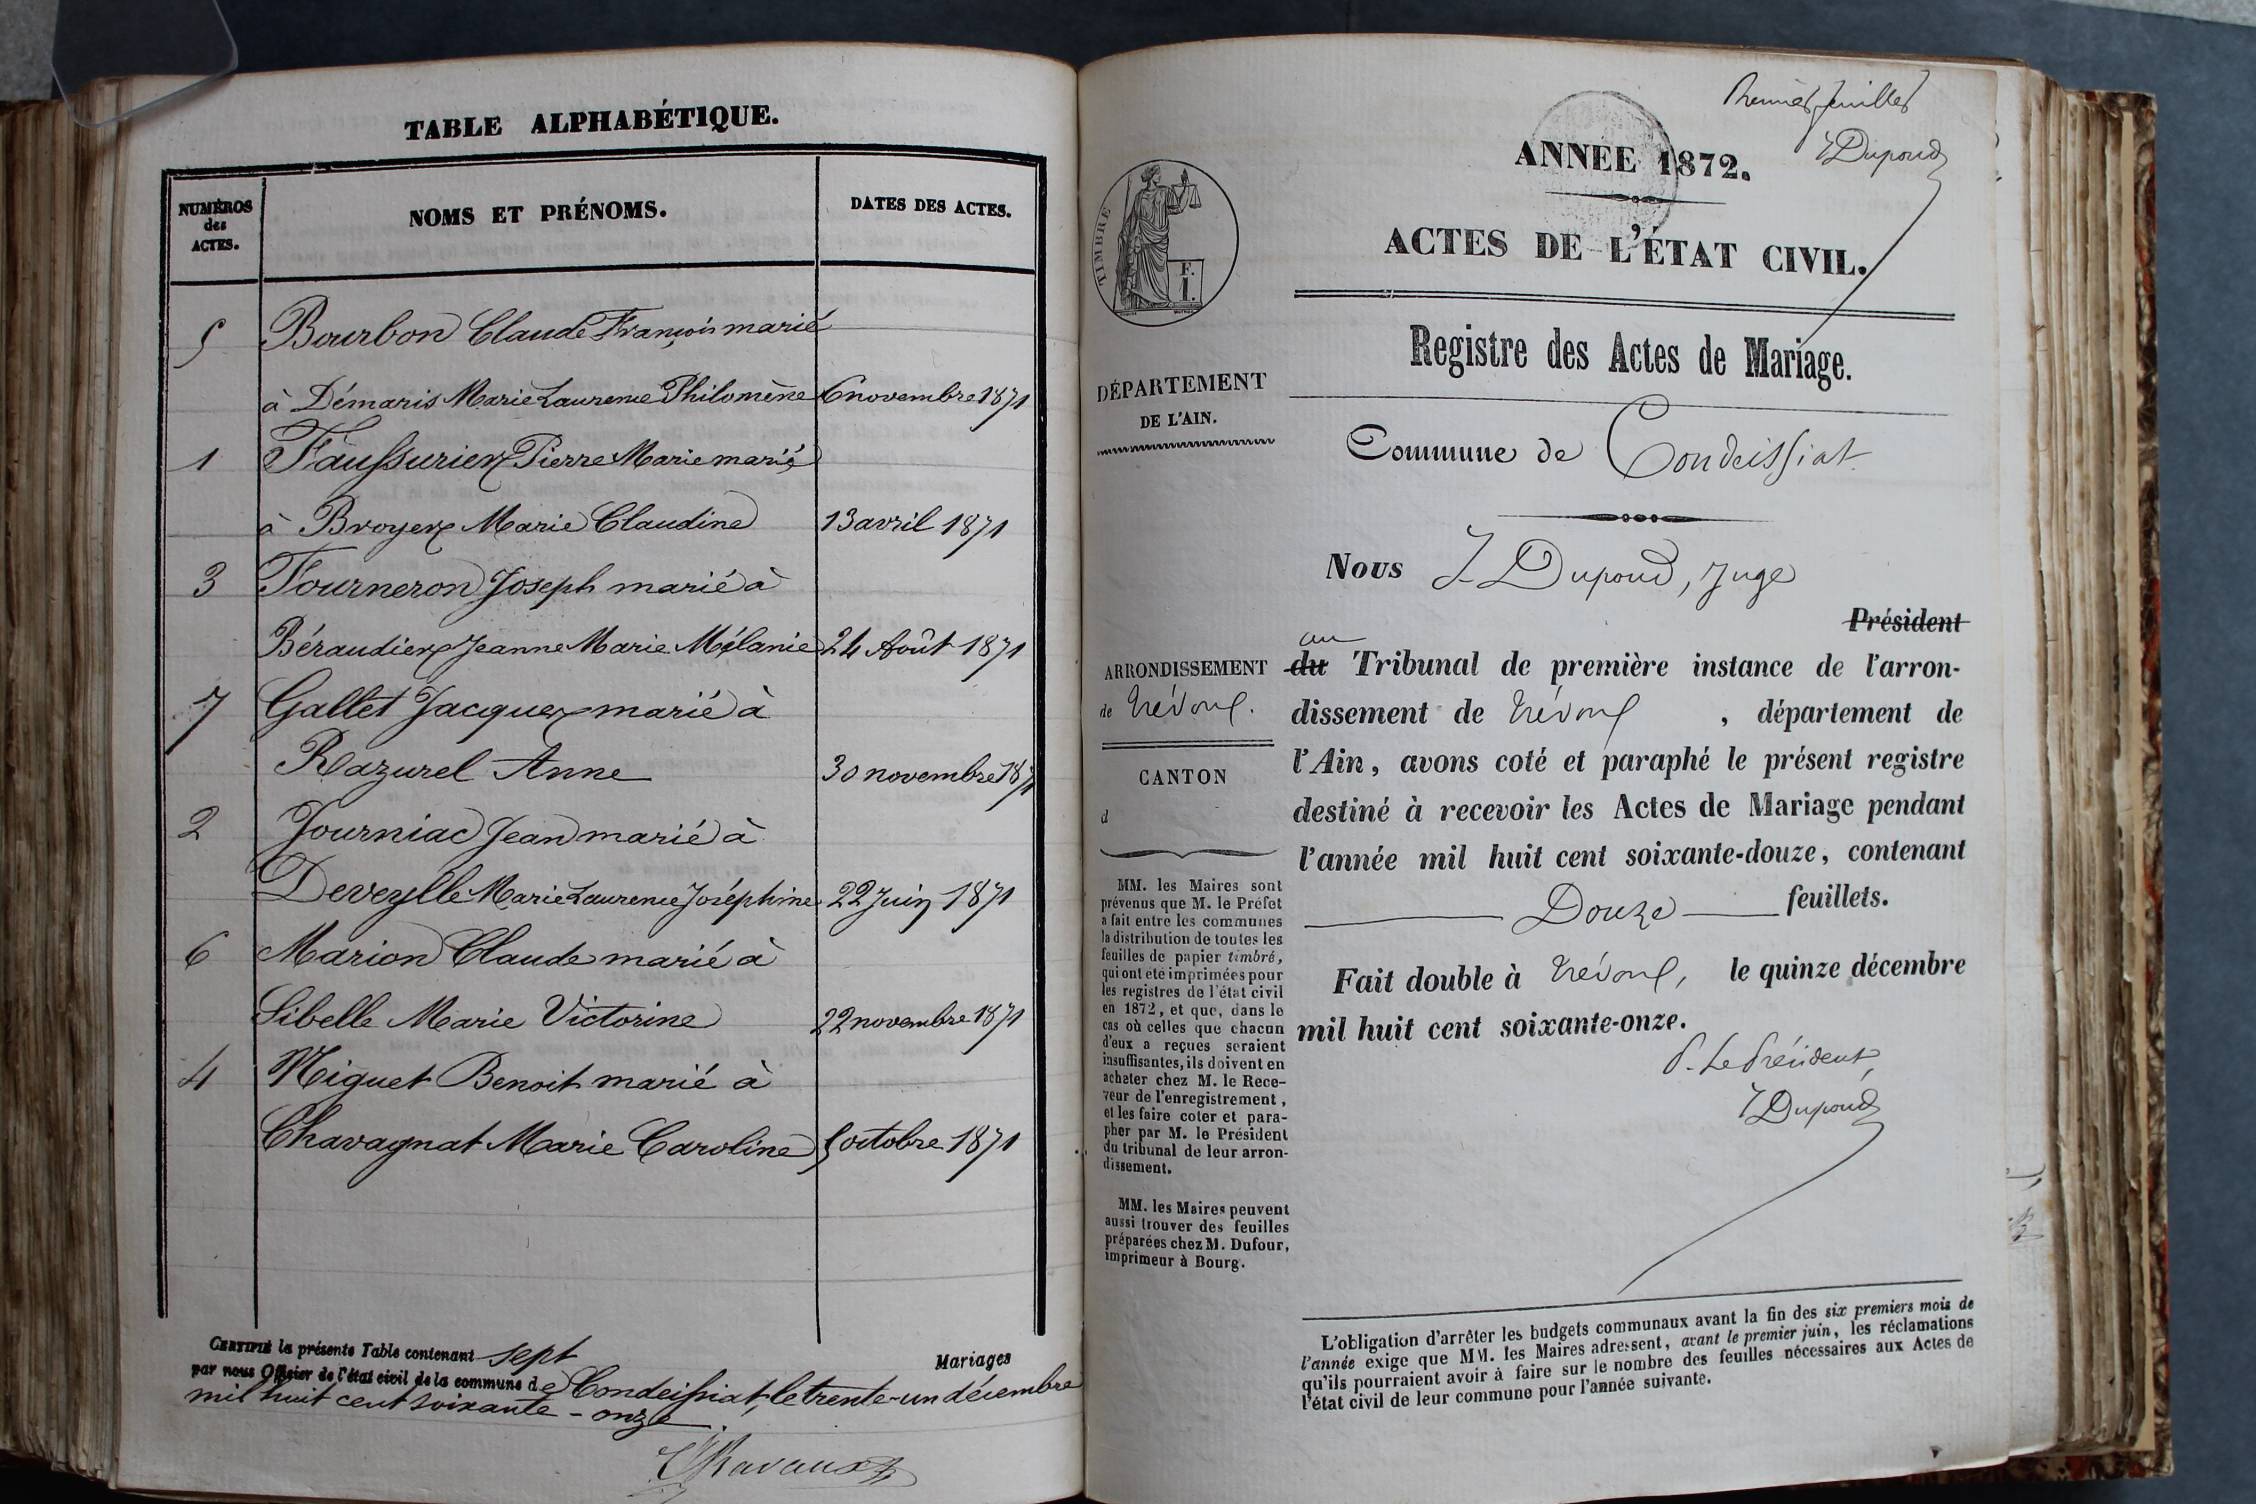 TABLE ALPHABÉTIQUE.
NUMÉROS
des
ACTES.
NOMS ET PRÉNOMS.
DATES DES ACTES.
5 Bourbon Claude François marié
à Démaris Marie Laurence Philomène 6 novembre 1871
1 Faussurier Pierre Marie marié
à Broyer Marie Claudine 13 avril 1871
3 Fourneron Joseph marié à
Béraudier Jeanne Marie Mélanie 24 Août 1871
7 Gallet Jacques marié à
Razurel Anne 30 novembre 1871
2 Journiac Jean marié à
Deveylle Marie Laurence Joséphine 22 Juin 1871
6 Marion Claude marié à
Sibelle Marie Victorine 22 novembre 1871
4 Niguet Benoit marié à
Chavagnat Marie Caroline 5 octobre 1871
CERTIFIÉ la présente Table contenant sept Mariages
par nous Officier de l'état civil de la commune de Condeissiat, le trente-un décembre
mil huit cent soixante-onze
Premier feuillet
J Dupond
ANNÉE 1872.
ACTES DE L'ÉTAT CIVIL.
TIMBRE
F.
I.
Registre des Actes de Mariage.
DÉPARTEMENT
DE L'AIN.
Commune de Condeissiat
Nous J. Dupond, Juge
Président
au
du Tribunal de première instance de l'arron-
dissement de Trévoux, département de
l'Ain, avons coté et paraphé le présent registre
destiné à recevoir les Actes de Mariage pendant
l'année mil huit cent soixante-douze, contenant
Douze feuillets.
Fait double à Trévoux, le quinze décembre
mil huit cent soixante-onze.
P. Le Président,
J Dupond
ARRONDISSEMENT
de Trévoux.
CANTON
d
MM. les Maires sont
prévenus que M. le Préfet
a fait entre les communes
la distribution de toutes les
feuilles de papier timbré,
qui ont été imprimées pour
les registres de l'état civil
en 1872, et que, dans le
cas où celles que chacun
d'eux a reçues seraient
insuffisantes, ils doivent en
acheter chez M. le Rece-
veur de l'enregistrement,
et les faire coter et para-
pher par M. le Président
du tribunal de leur arron-
dissement.
MM. les Maires peuvent
aussi trouver des feuilles
préparées chez M. Dufour,
imprimeur à Bourg.
L'obligation d'arrêter les budgets communaux avant la fin des six premiers mois de
l'année exige que MM. les Maires adressent, avant le premier juin, les réclamations
qu'ils pourraient avoir à faire sur le nombre des feuilles nécessaires aux Actes de
l'état civil de leur commune pour l'année suivante.